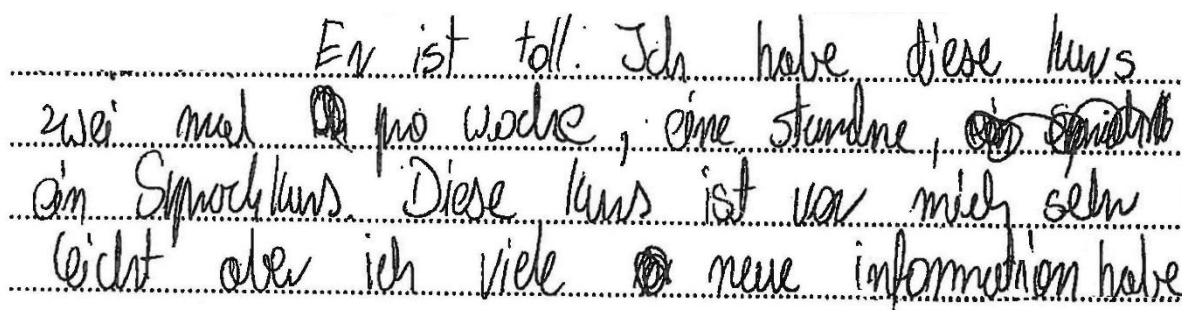 Er ist toll. Ich habe diese kurs
zwei mal pro woche, eine standne,
ein Sprachkurs. Diese kurs ist vor mich sehr
leicht aber ich viele neue information habe